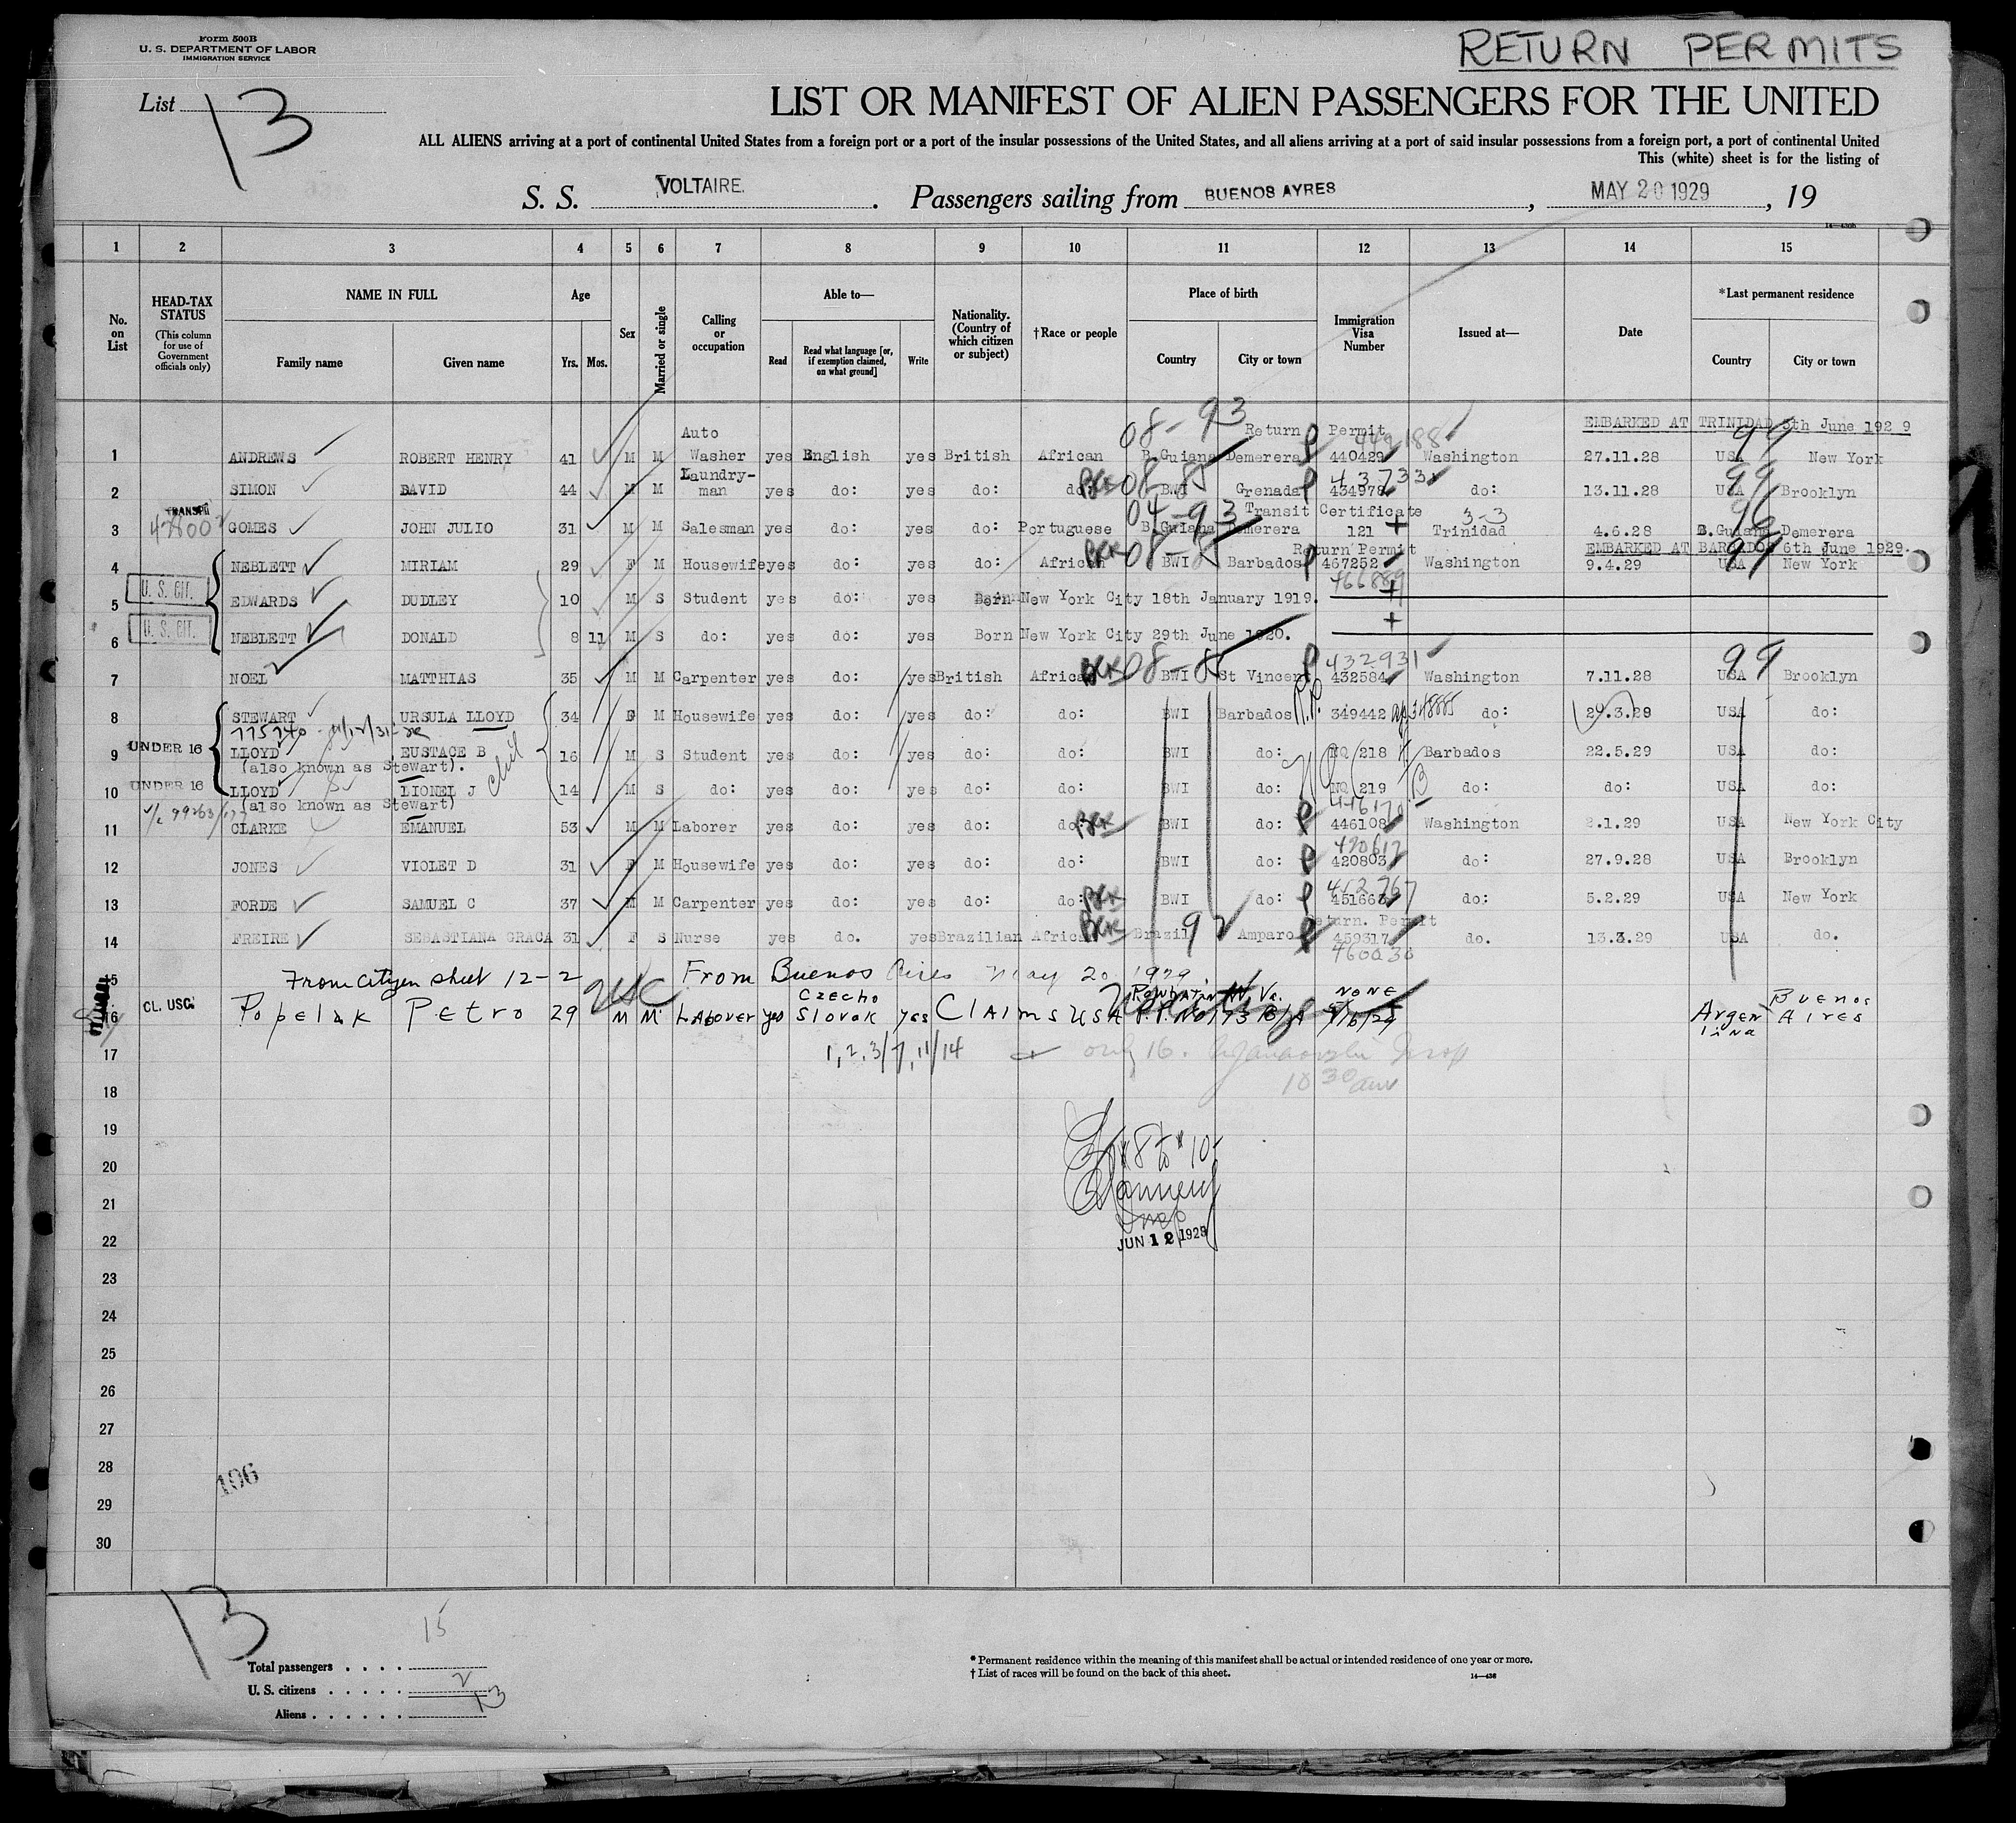 Form 500B
U. S. DEPARTMENT OF LABOR
IMMIGRATION SERVICE
RETURN PERMITS
List 13
LIST OR MANIFEST OF ALIEN PASSENGERS FOR THE UNITED
ALL ALIENS arriving at a port of continental United States from a foreign port or a port of the insular possessions of the United States, and all aliens arriving at a port of said insular possessions from a foreign port, a port of continental United
This (white) sheet is for the listing of
S. S. VOLTAIRE. Passengers sailing from BUENOS AYRES, MAY 20 1929, 19
1 2 3 4 5 6 7 8 9 10 11 12 13 14 15
No. on List
HEAD-TAX STATUS (This column for use of Government officials only)
NAME IN FULL Family name Given name
Age Yrs. Mos.
Sex
Married or single
Calling or occupation
Able to— Read Read what language [or, if exemption claimed, on what ground] Write
Nationality. (Country of which citizen or subject)
†Race or people
Place of birth Country City or town
Immigration Visa Number
Issued at—
Date
*Last permanent residence Country City or town
08-93 Return Permit EMBARKED AT TRINIDAD 5th June 1929
1 ANDREWS ROBERT HENRY 41 M M Auto Washer yes English yes British African B.Guiana Demerera 440429 Washington 27.11.28 USA New York
2 SIMON DAVID 44 M M Laundry-man yes do: yes do: do: BWI Grenada 434978 do: 13.11.28 USA Brooklyn
04-93 Transit Certificate 3-3
3 GOMES JOHN JULIO 31 M M Salesman yes do: yes do: Portuguese B.Guiana Demerera 121 Trinidad 4.6.28 B.Guiana Demerera
Return Permit EMBARKED AT BARBADOS 6th June 1929.
4 NEBLETT MIRIAM 29 F M Housewife yes do: yes do: African BWI Barbados 467252 Washington 9.4.29 USA New York
466889
5 U. S. CIT. EDWARDS DUDLEY 10 M S Student yes do: yes Born New York City 18th January 1919.
6 U. S. CIT. NEBLETT DONALD 8 11 M S do: yes do: yes Born New York City 29th June 1920.
432931
7 NOEL MATTHIAS 35 M M Carpenter yes do: yes British African BWI St Vincent 432584 Washington 7.11.28 USA Brooklyn
8 STEWART URSULA LLOYD 34 F M Housewife yes do: yes do: do: BWI Barbados 349442 do: 29.3.29 USA do:
9 UNDER 16 LLOYD EUSTACE B 16 M S Student yes do: yes do: do: BWI do: NQ 218 Barbados 22.5.29 USA do:
(also known as Stewart).
10 UNDER 16 LLOYD LIONEL J 14 M S do: yes do: yes do: do: BWI do: NQ 219 do: do: USA do:
(also known as Stewart)
11 CLARKE EMANUEL 53 M M Laborer yes do: yes do: do: BWI do: 446108 Washington 2.1.29 USA New York City
12 JONES VIOLET D 31 F M Housewife yes do: yes do: do: BWI do: 420803 do: 27.9.28 USA Brooklyn
13 FORDE SAMUEL C 37 M M Carpenter yes do: yes do: do: BWI do: 451668 do: 5.2.29 USA New York
Return. Permit
14 FREIRE SEBASTIANA GRACA 31 F S Nurse yes do. yes Brazilian African Brazil Amparo 459317 do. 13.3.29 USA do.
460030
15 From Citizen sheet 12-2 From Buenos Aires May 20 1929.
16 CL. USC. Popelak Petro 29 USC M M Laborer yes Czecho Slovak yes Claims USA NONE Argentina Buenos Aires
17 1, 2, 3/7, 11/14 only 16.
18 10 30 am
19
20 8 to 10
21
22 JUN 12 1929
23
24
25
26
27
28 106
29
30
13
15
Total passengers
U. S. citizens 2
Aliens 13
* Permanent residence within the meaning of this manifest shall be actual or intended residence of one year or more.
† List of races will be found on the back of this sheet.
14—436